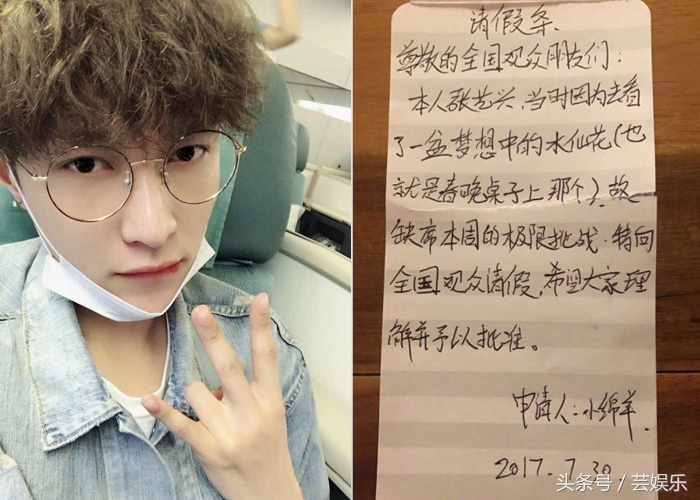 请假条.
尊敬的全国观众朋友们：
本人张艺兴,当时因为去看
了一盆梦想中的水仙花(也
就是春晚桌子上那个).故
缺席本周的极限挑战.特向
全国观众请假,希望大家理
解并予以批准。
申请人:小绵羊.
2017.7.30
头条号/芸娱乐